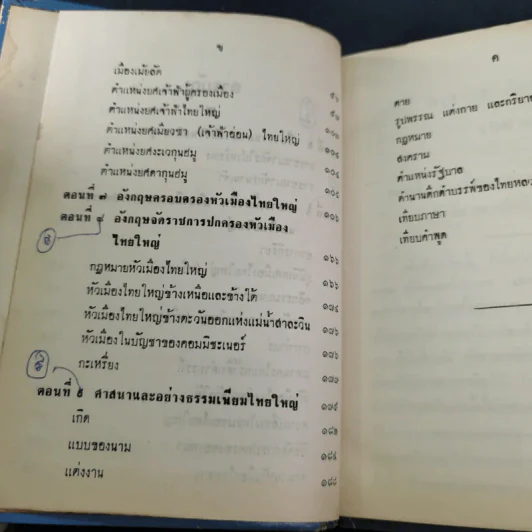 ข
เมืองเมัยลัด
ตำแหน่งยศเจ้าฟ้าผู้ครองเมือง
ตำแหน่งยศเจ้าฟ้าไทยใหญ่
ตำแหน่งยศเมียงซา (เจ้าฟ้าอ่อน) ไทยใหญ่
ตำแหน่งยศงะเวกุนฮมู ๑๐๔
ตำแหน่งยศตากุนฮมู ๑๐๔
ตอนที่ ๗ อังกฤษครอบครองหัวเมืองไทยใหญ่ ๑๐๖
ตอนที่ อังกฤษจัดราชการปกครองหัวเมือง
ไทยใหญ่ ๑๖๖
กฎหมายหัวเมืองไทยใหญ่ ๑๖๖
หัวเมืองไทยใหญ่ข้างเหนือและข้างใต้
หัวเมืองไทยใหญ่ข้างตะวันออกแห่งแม่น้ำสาละวิน
หัวเมืองในบัญชาของคอมมิชะเนอร์
กะเหรี่ยง
ตอนที่ ศาสนาและอย่างธรรมเนียมไทยใหญ่
เกิด
แบบของนาม
แต่งงาน
ค
ตาย
รูปพรรณ แต่งกาย และกริยา
กฎหมาย
สงคราม
ตำแหน่งรัฐบาล
ตำนานดึกดำบรรพ์ของไทยหลวง
เทียบภาษา
เทียบคำพูด